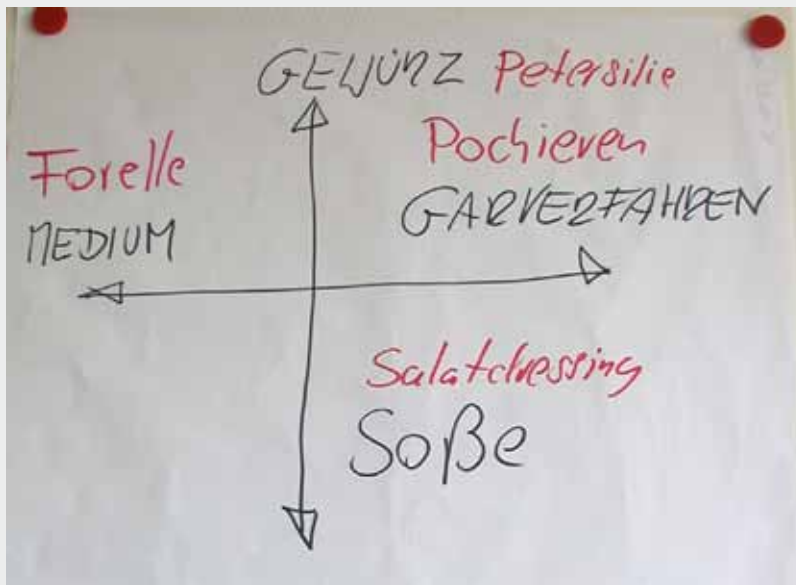 GEWÜRZ Petersilie
Forelle
MEDIUM
Pochieren
GARVERFAHREN
Salatdressing
Soße